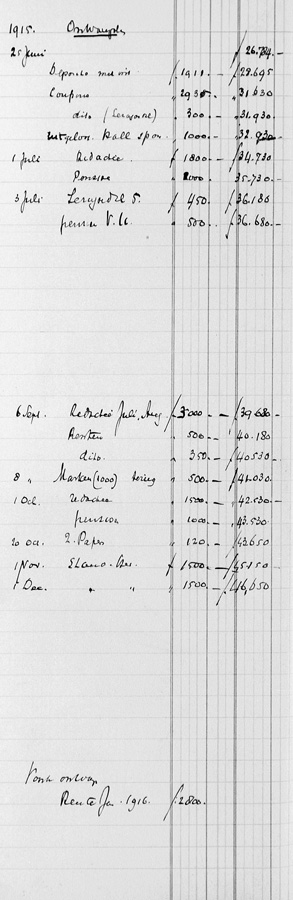 1915. Ontvangsten
25 Juni ƒ 26.784 -
Deposito ƒ 1911 - ƒ 28.695
Coupons " 2935 - " 31.630
dito 300 - " 31.930
1000 - " 32.930
1 Juli Redactie ƒ 1800 - ƒ 34.730
Pensioen 1000 35.730 -
3 Juli ƒ 450. ƒ 36.180
pensioen V. U. " 500. ƒ 36.680 -
6 Sept. Redactie Juli, Aug. ƒ 3000 - ƒ 39.680 -
Renten " 500 - " 40.180
dito. " 350 - ƒ 40.530 -
8 " Marken (1000) " 500 - ƒ 41.030 -
1 Oct. Redactie " 1500 - " 42.530 -
pensioen " 1000 - " 43.530
20 Oct. 2. Paper " 120. - ƒ 43.650
1 Nov. ƒ 1500 - ƒ 45.150
1 Dec. " " " 1500 - ƒ 46.650
Rente Jan. 1916. ƒ 2800.